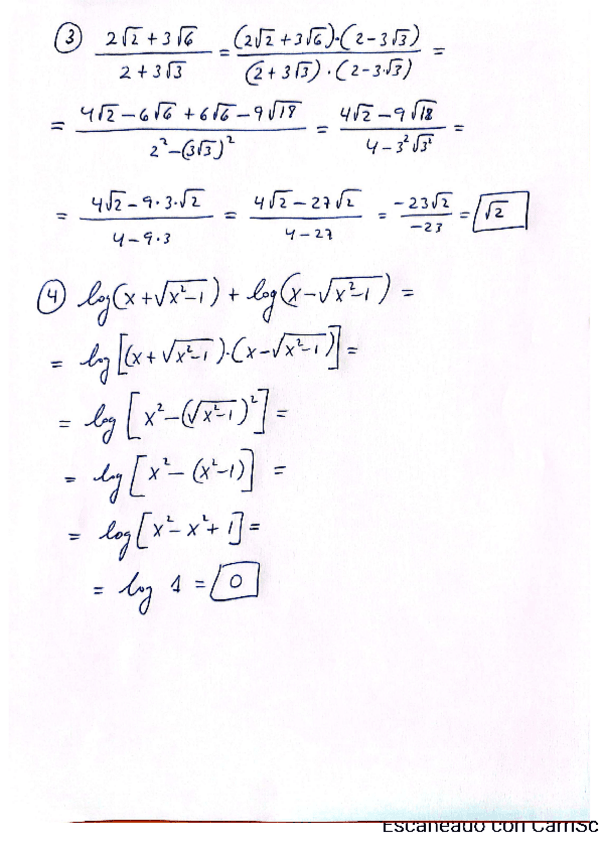 ③ (2√2 + 3√6)/(2 + 3√3) = ((2√2 + 3√6)·(2 - 3√3))/((2 + 3√3)·(2 - 3·√3)) =
= (4√2 - 6√6 + 6√6 - 9√18)/(2² - (3√3)²) = (4√2 - 9√18)/(4 - 3²√3²) =
= (4√2 - 9·3·√2)/(4 - 9·3) = (4√2 - 27√2)/(4 - 27) = (-23√2)/(-23) = √2
④ log(x + √(x²-1)) + log(x - √(x²-1)) =
= log[(x + √(x²-1))·(x - √(x²-1))] =
= log[x² - (√(x²-1))²] =
= log[x² - (x²-1)] =
= log[x² - x² + 1] =
= log 1 = 0
Escaneado con CamSc